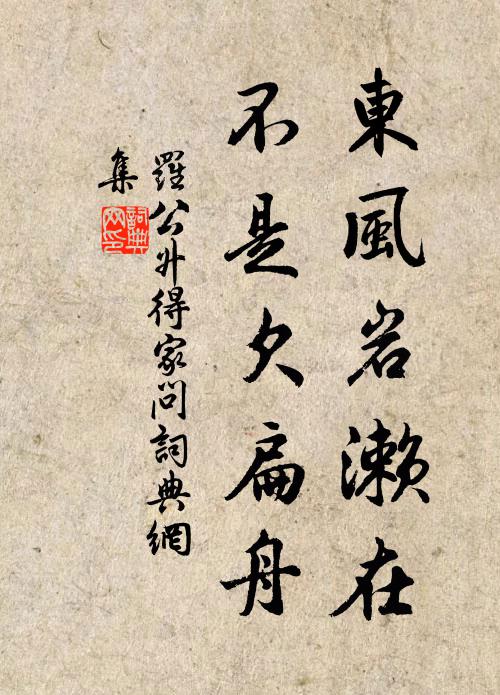 東風岩瀨在
不是欠扁舟
羅公升得家問詞典網
集
詞典網印